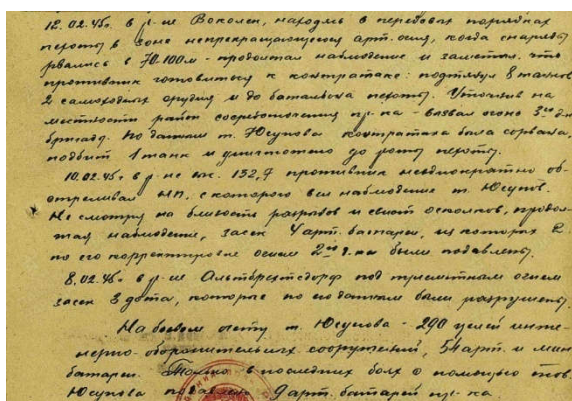 12.02.45г. в р-не Воколен, находясь в передовых порядках
пехоты в зоне непрекращающегося арт. огня, когда снаряды
рвались в 70.100м - продолжал наблюдение и заметил, что
противник готовится к контратаке: подтянул 8 танков
2 самоходных орудия и до батальона пехоты. Уточнив на
местности район сосредоточения пр-ка - вызвал огонь 3го д-на
бригады. По данным т. Юсупова контратака была сорвана,
подбит 1 танк и уничтожено до роты пехоты.
10.02.45г в р-не выс. 132,7 противник неоднократно об-
стреливал НП, с которого вел наблюдение т. Юсупов.
Не смотря на близость разрывов и свист осколков, продол-
жая наблюдение, засек 4 арт. батареи, из которых 2
по его корректировке огнем 2го д-на были подавлены.
8.02.45г в р-не Альтбрехтсдорф под пулеметным огнем
засек 3 дзота, которые по его данным были разрушены.
На боевом счету т. Юсупова - 290 целей инже-
нерно-оборонительных сооружений, 54 арт. и мин
батареи. Только в последних боях с помощью тов.
Юсупова подавлено 9 арт. батарей пр-ка.